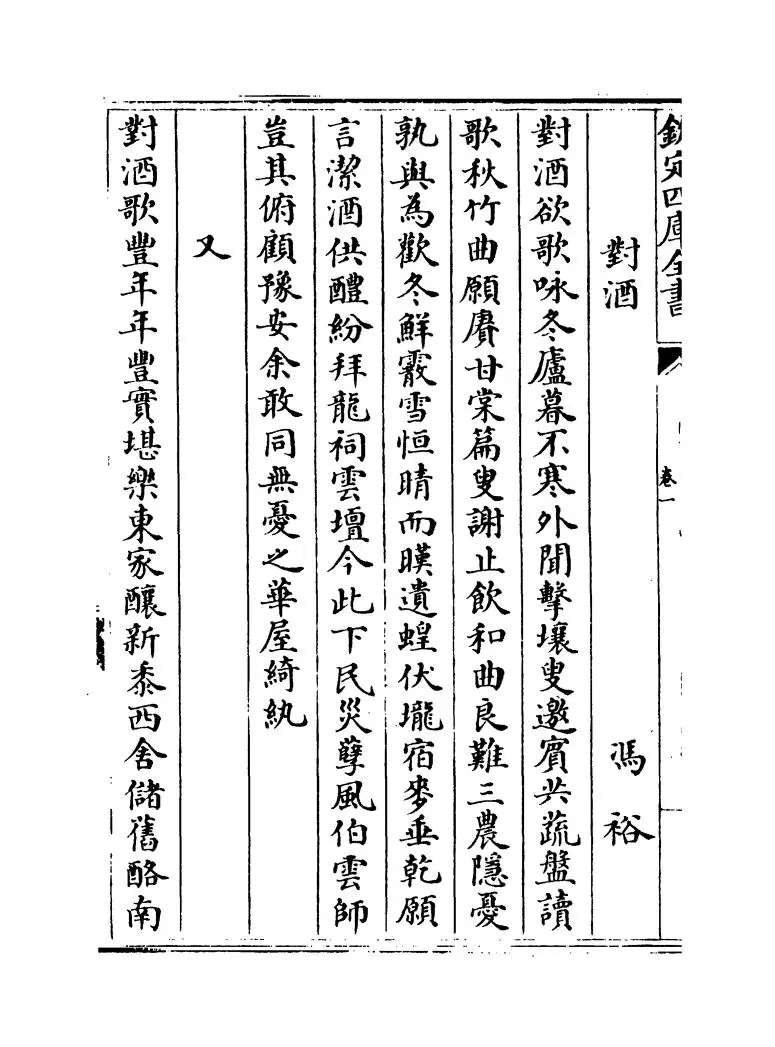 欽定四庫全書
卷一
對酒　馮裕
對酒欲歌咏冬廬暮不寒外聞擊壤叟邀賓共蔬盤讀
歌秋竹曲願賡甘棠篇叟謝止飲和曲良難三農隱憂
孰與為歡冬鮮霰雪恒晴而暵遺蝗伏壠宿麥垂乾願
言潔酒供醴紛拜龍祠雲壇今此下民災孽風伯雲師
豈其俯顧豫安余敢同無憂之華屋綺紈
又
對酒歌豐年年豐實堪樂東家釀新黍西舍儲舊酪南